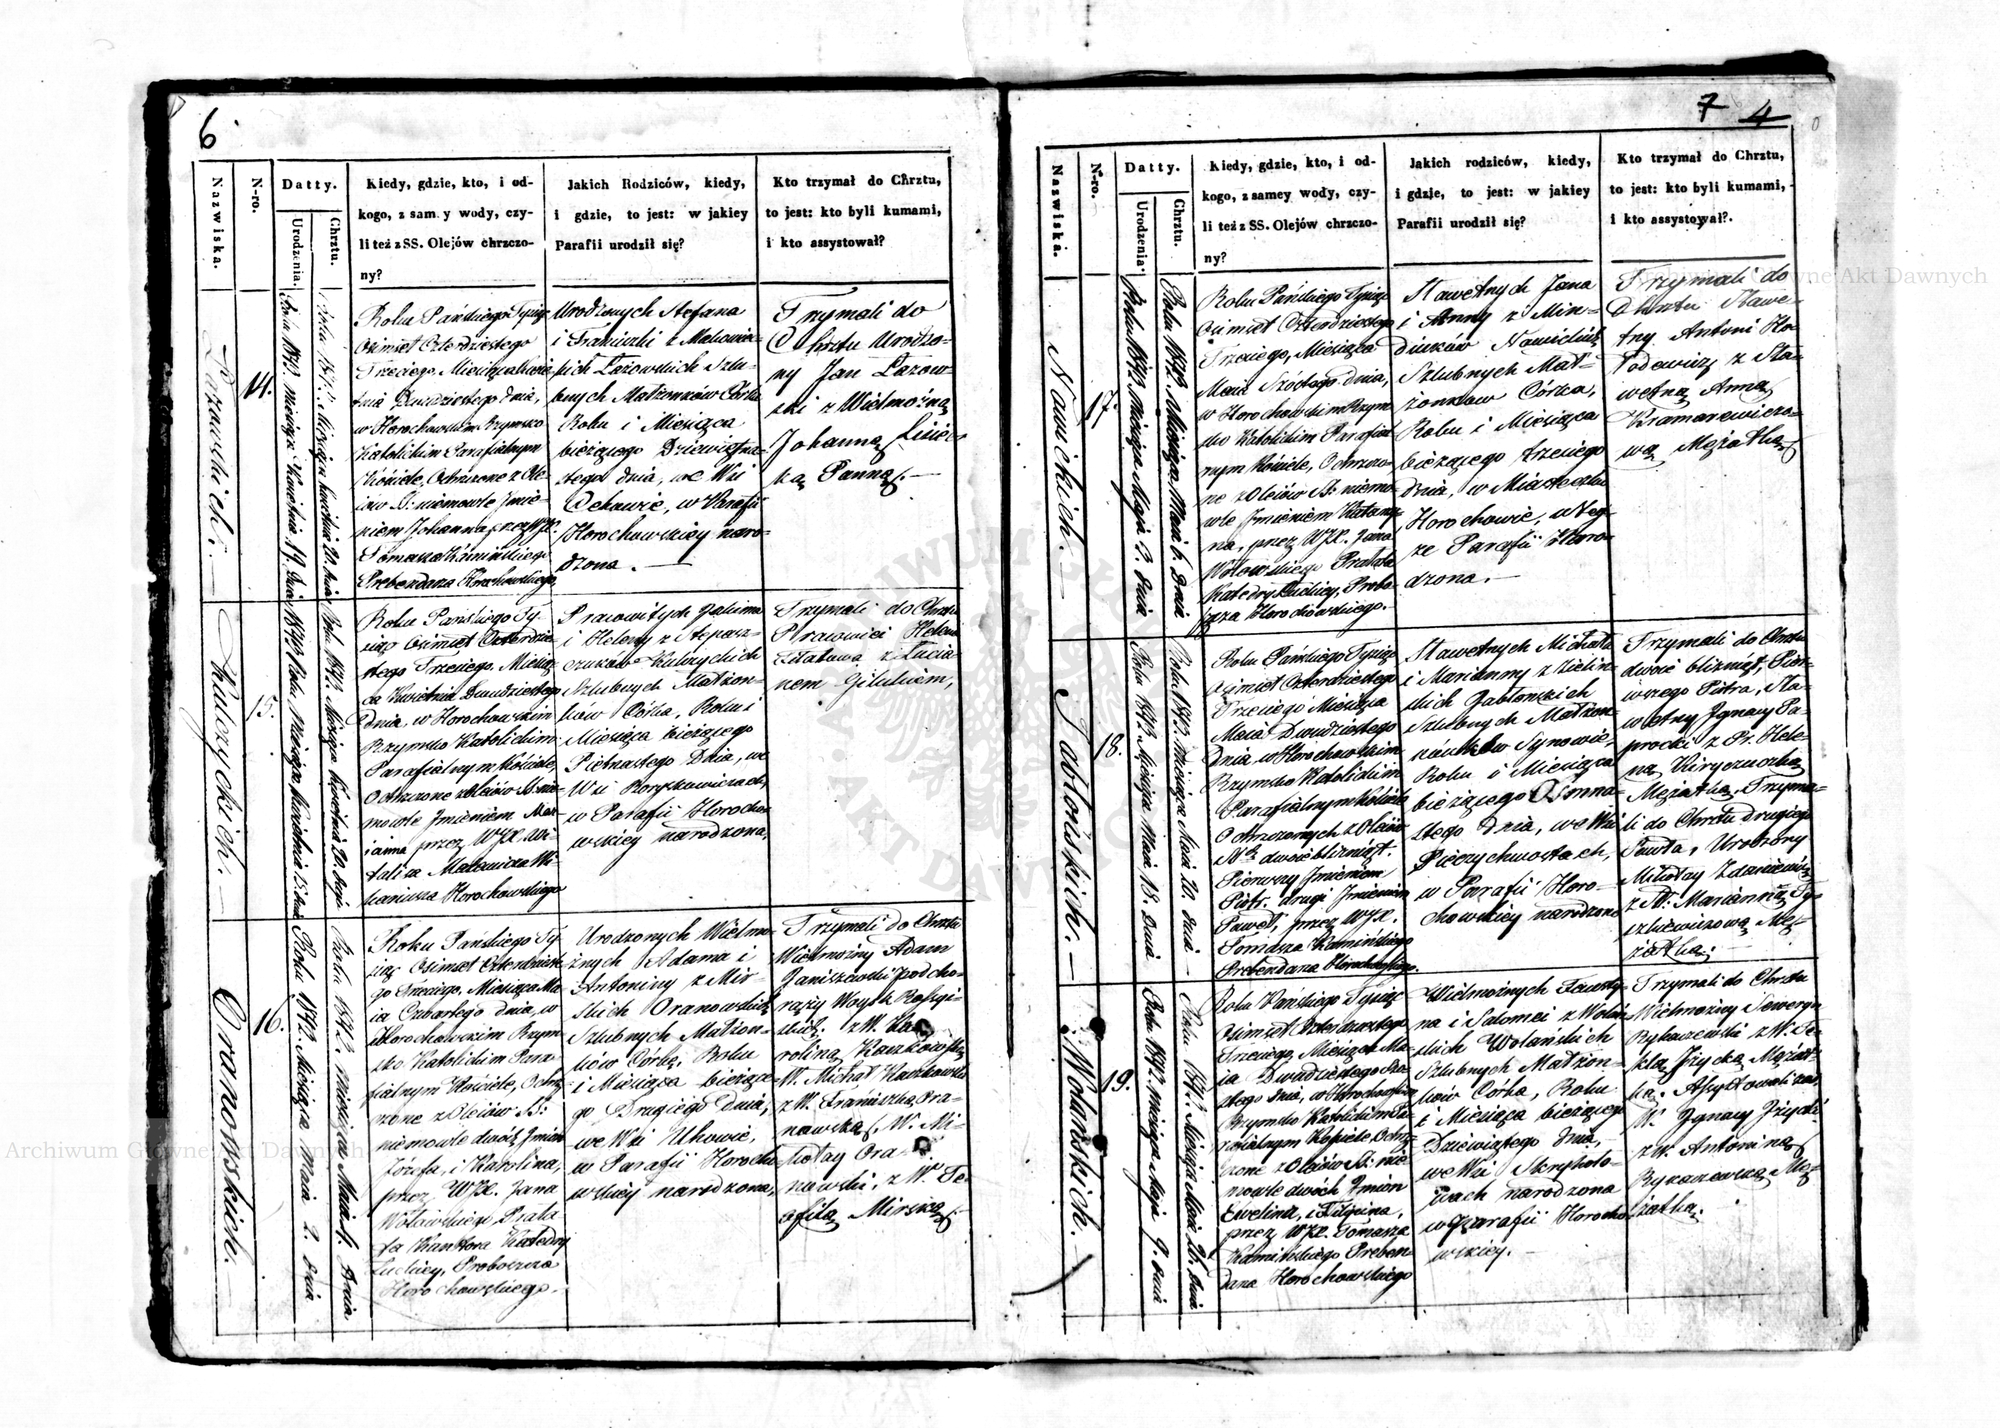 6
7 4
Nazwiska.
N-ro.
Datty.
Urodzenia.
Chrztu.
Kiedy, gdzie, kto, i od-
kogo, z sam y wody, czy-
li też z SS. Olejów chrzczo-
ny?
Jakich Rodziców, kiedy,
i gdzie, to jest: w jakiey
Parafii urodził się?
Kto trzymał do Chrztu,
to jest: kto byli kumami,
i kto assystował?
Łazowskich.
14.
Roku 1843 Miesiąca Kwietnia 19. dnia
Roku 1843. Miesiąca Kwietnia 20. dnia
Roku Pańskiego Tysiąc
Osimset Czterdziestego
Trzeciego, Miesiąca Kwie
tnia Dwudziestego dnia,
w Horochowskim Rzymsko
Katolickim Parafialnym
Kościele, Ochrzczone z Ole
iów S: niemowle Jmie-
niem Johanna, przez WJX.
Tomasza Kamińskiego
Prebendarza Horochowskiego
Urodzonych Stefana
i Franciszki z
Łazowskich Szlu-
bnych Małżonków Córka
Roku i Miesiąca
bieżącego Dziewiętna-
stego dnia, we Wsi
w Parafii
Horochowskiey naro-
dzona.
Trzymali do
Chrztu Urodzo-
ny Jan Łazow-
ski z Wielmożną
Johanną
Panną.
Kulczyckich.
15.
Roku 1843. Miesiąca Kwietnia 15. dnia
Roku 1843. Miesiąca Kwietnia 20. dnia
Roku Pańskiego Ty-
siąc Osimset Czterdzie
stego Trzeciego, Miesią
ca Kwietnia Dwudziestego
Dnia, w Horochowskim
Rzymsko Katolickim
Parafialnym Kościele,
Ochrzczone z Oleiów S: nie
mowle Jmieniem Mar
ianna przez WJX. Wi-
talisa
Horochowskiego
Pracowitych
i Heleny z Stepasz-
czuków Kulczyckich
Szlubnych Małżon-
ków Córka, Roku i
Miesiąca bieżącego
Pietnastego Dnia, we
Wsi Boryskowiczach,
w Parafii Horocho
wskiey narodzona,
Trzymali do Chrztu
Pracowici Helena
z Łucia-
nem
Oranowskich.
16.
Roku 1843. Miesiąca Maia 2. dnia
Roku 1843. Miesiąca Maia 4. Dnia
Roku Pańskiego Ty-
siąc Osimset Czterdzieste
go Trzeciego, Miesiąca Ma
ia Czwartego dnia, w
Horochowskim Rzym-
sko Katolickim Para-
fialnym Kościele, Ochrz
czone z Oleiów S:
niemowle dwóch Jmion
Józefa, i Karolina,
przez WJX. Jana
Wołowskiego Prała
ta Kantora Katedry
Łuckiey, Proboszcza
Horochowskiego.
Urodzonych Wielmo-
żnych Adama i
Antoniny z Mir-
skich Oranowskich
Szlubnych Małżon-
ków Córka, Roku
i Miesiąca bieżące-
go Drugiego dnia,
we Wsi Uhowie,
w Parafii Horocho
wskiey narodzona,
Trzymali do Chrztu
Wielmożny Adam
Janiszewski podcho-
rąży Woysk
z W. Ka-
roliną Kaszkowską
W. Michał Kaszkowski
z W. Franciszką Ora-
nowską, W. Mi-
kołay Ora-
nowski, z W. Te-
ofilą Mirską
Nazwiska.
N-ro.
Datty.
Urodzenia.
Chrztu.
Kiedy, gdzie, kto, i od-
kogo, z samey wody, czy-
li też z SS. Olejów chrzczo-
ny?
Jakich rodziców, kiedy,
i gdzie, to jest: w jakiey
Parafii urodził się?
Kto trzymał do Chrztu,
to jest: kto byli kumami,
i kto assystował?.
Nawickich.
17.
Roku 1843 Miesiąca Maja 3. dnia
Roku 1843. Miesiąca Maia 6. Dnia
Roku Pańskiego Tysiąc
Osimset Czterdziestego
Trzeciego, Miesiąca
Maia Szóstego dnia,
w Horochowskim Rzym
sko Katolickim Parafial
nym Kościele, Ochrzczo-
ne z Oleiów S: niemo-
wle Jmieniem Katarzy-
na, przez WJX. Jana
Wołowskiego Prałata
Katedry Łuckiey, Probo
szcza Horochowskiego.
Sławetnych Jana
i Anny z Min-
diuków Nawickich
Szlubnych Mał-
żonków Córka,
Roku i Miesiąca
bieżącego trzeciego
dnia, w Miasteczku
Horochowie, w teg-
że Parafii naro-
dzona.
Trzymali do
Chrztu Sławe-
tny Antoni
z Sła-
wetną Anną
Kramarewiczo-
wą Mężatką
Jabłońskich.
18.
Roku 1843. Miesiąca Maia 18. Dnia
Roku 1843. Miesiąca Maia 20. dnia
Roku Pańskiego Tysiąc
Osimset Czterdziestego
Trzeciego Miesiąca
Maia Dwudziestego
Dnia, w Horochowskim
Rzymsko Katolickim
Parafialnym Kościele
Ochrzczonych z Oleiów
dwoie bliźniąt.
Pierwszy Jmieniem
Piotr, drugi Jmieniem
Paweł, przez WJX.
Tomasza Kamińskiego
Prebendarza Horochowskiego.
Sławetnych Michała
i Marianny z Zielin-
skich Jabłonskich
Szlubnych Małżon-
Synowie,
Roku i Miesiąca
bieżącego Osmna-
stego dnia, we Wsi
Pieczychwostach,
w Parafii Horo-
chowskiey narodzone
Trzymali do Chrztu
dwoie bliźniąt, Pier-
wszego Piotra, Sła-
wetny Jgnacy Pa-
procki z Pr. Hele-
ną Kiryczuczką
Mężatką, Trzyma-
li do Chrztu drugiego
Pawła, Urodzony
Mikołay Zdaniewicz
z W. Marianną
Mę-
żatką.
Wolańskich.
19.
Roku 1843. Miesiąca Maja 9. dnia
Roku 1843 Miesiąca Maia 26. dnia
Roku Pańskiego Tysiąc
Osimset Czterdziestego
Trzeciego, Miesiąca Ma-
ia Dwudziestego Szó-
stego dnia, w Horochowskim
Rzymsko Katolickim Pa-
rafialnym Kościele Ochrz
czone z Oleiów S: nie-
mowle dwóch Jmion
Ewelina, i Filipina,
przez WJX. Tomasza
Kamińskiego Preben
darza Horochowskiego
Wielmożnych Fausty-
na i Salomei z
Wolańskich
Szlubnych Małżon-
ków Córka, Roku
i Miesiąca bieżącego
Dziewiątego dnia,
we Wsi
narodzona
w Parafii Horocho
wskiey.
Trzymali do Chrztu
Wielmożny Seweryn
Rykaczewski z W. Te-
klą Jżycką Mężat-
ką. Assystowali zaś,
W. Jgnacy Jżycki
z W. Antoniną
Rykaczewską Mę-
żatką.
Archiwum Główne Akt Dawnych
Archiwum Główne Akt Dawnych